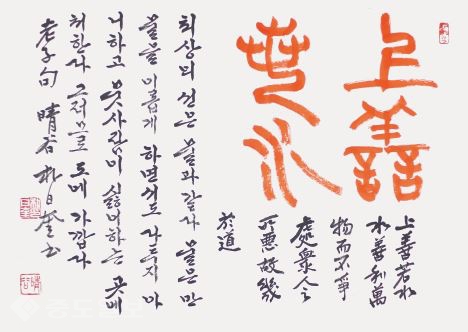 上善
若水
上善若水
水善利萬
物而不爭
處衆人之
所惡故幾
於道
최상의 선은 물과 같다 물은 만
물을 이롭게 하면서도 다투지 아
니하고 뭇사람이 싫어하는 곳에
처한다 그러므로 도에 가깝다
老子句 晴谷 朴日奎 書
중도일보